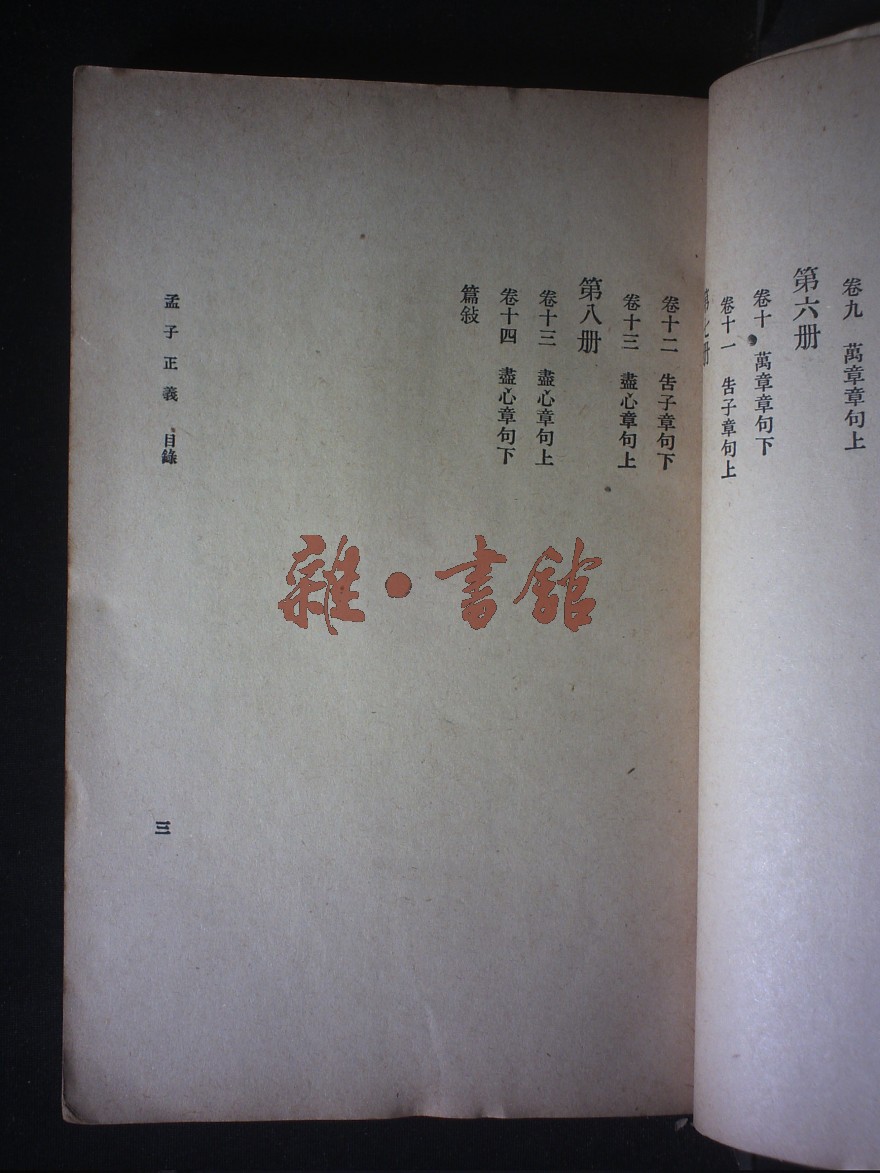 卷九 萬章章句上
第六册
卷十 萬章章句下
卷十一 告子章句上
第七册
卷十二 告子章句下
卷十三 盡心章句上
第八册
卷十三 盡心章句上
卷十四 盡心章句下
篇敍
孟子正義 目錄
三
雜·書館